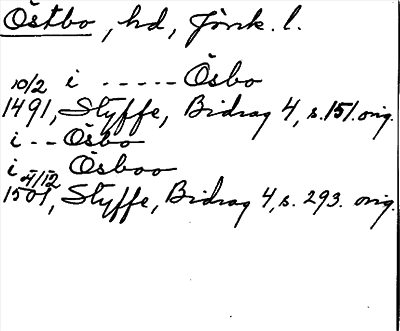 Östbo, hd, Jönk. l.
10/2 i ----- Ösbo
1491, Styffe, Bidrag 4, s. 151. orig.
i -- Ösbo
i Ösboo
4/12
1501, Styffe, Bidrag 4, s. 293. orig.